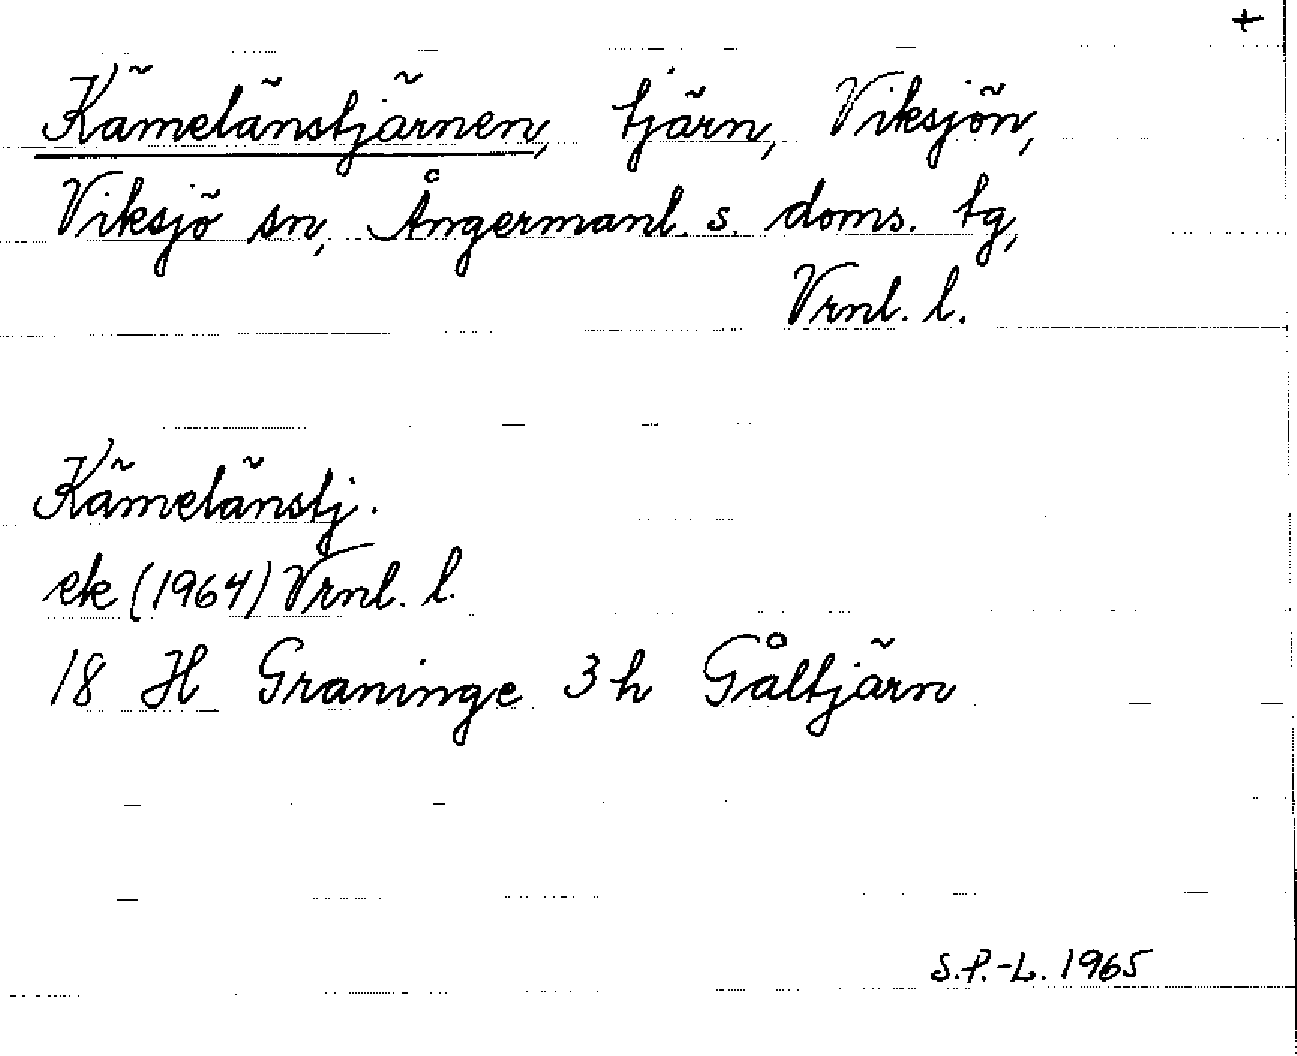 +
Kämelänstjärnen, tjärn, Viksjön,
Viksjö sn, Ångermanl. s. doms. tg,
Vrnl. l.
Kämelänstj.
ek (1964) Vrnl. l.
18 H Graninge 3 h Gåltjärn
S.P.-L. 1965